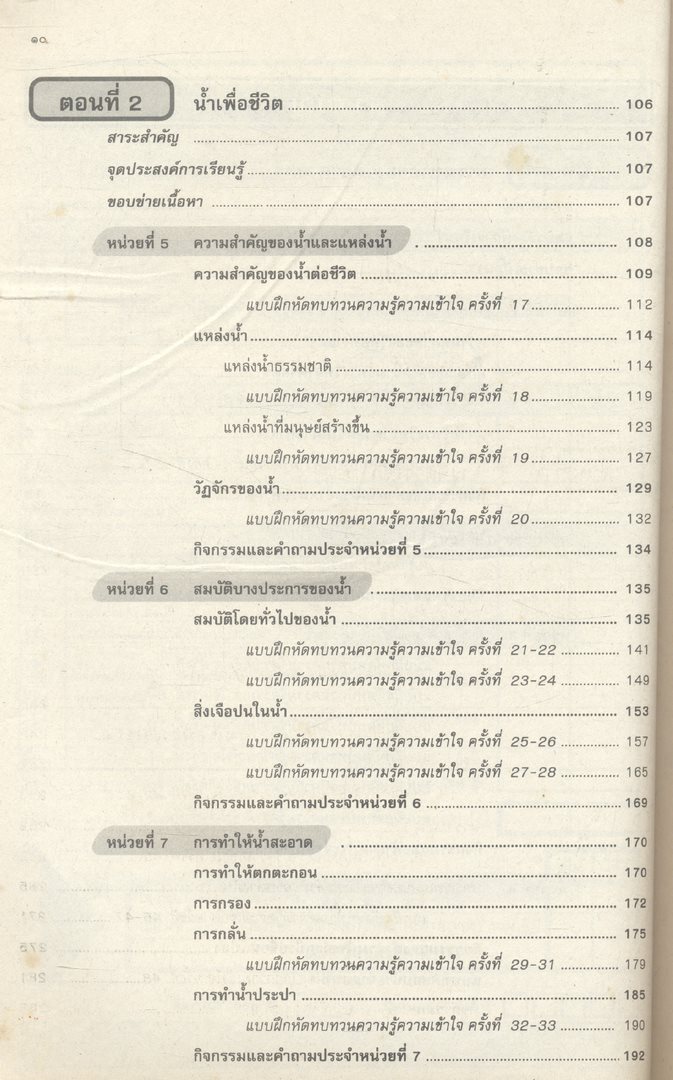 ๑๐
ตอนที่ 2 น้ำเพื่อชีวิต 106
สาระสำคัญ 107
จุดประสงค์การเรียนรู้ 107
ขอบข่ายเนื้อหา 107
หน่วยที่ 5 ความสำคัญของน้ำและแหล่งน้ำ 108
ความสำคัญของน้ำต่อชีวิต 109
แบบฝึกหัดทบทวนความรู้ความเข้าใจ ครั้งที่ 17 112
แหล่งน้ำ 114
แหล่งน้ำธรรมชาติ 114
แบบฝึกหัดทบทวนความรู้ความเข้าใจ ครั้งที่ 18 119
แหล่งน้ำที่มนุษย์สร้างขึ้น 123
แบบฝึกหัดทบทวนความรู้ความเข้าใจ ครั้งที่ 19 127
วัฏจักรของน้ำ 129
แบบฝึกหัดทบทวนความรู้ความเข้าใจ ครั้งที่ 20 132
กิจกรรมและคำถามประจำหน่วยที่ 5 134
หน่วยที่ 6 สมบัติบางประการของน้ำ 135
สมบัติโดยทั่วไปของน้ำ 135
แบบฝึกหัดทบทวนความรู้ความเข้าใจ ครั้งที่ 21-22 141
แบบฝึกหัดทบทวนความรู้ความเข้าใจ ครั้งที่ 23-24 149
สิ่งเจือปนในน้ำ 153
แบบฝึกหัดทบทวนความรู้ความเข้าใจ ครั้งที่ 25-26 157
แบบฝึกหัดทบทวนความรู้ความเข้าใจ ครั้งที่ 27-28 165
กิจกรรมและคำถามประจำหน่วยที่ 6 169
หน่วยที่ 7 การทำให้น้ำสะอาด 170
การทำให้ตกตะกอน 170
การกรอง 172
การกลั่น 175
แบบฝึกหัดทบทวนความรู้ความเข้าใจ ครั้งที่ 29-31 179
การทำน้ำประปา 185
แบบฝึกหัดทบทวนความรู้ความเข้าใจ ครั้งที่ 32-33 190
กิจกรรมและคำถามประจำหน่วยที่ 7 192